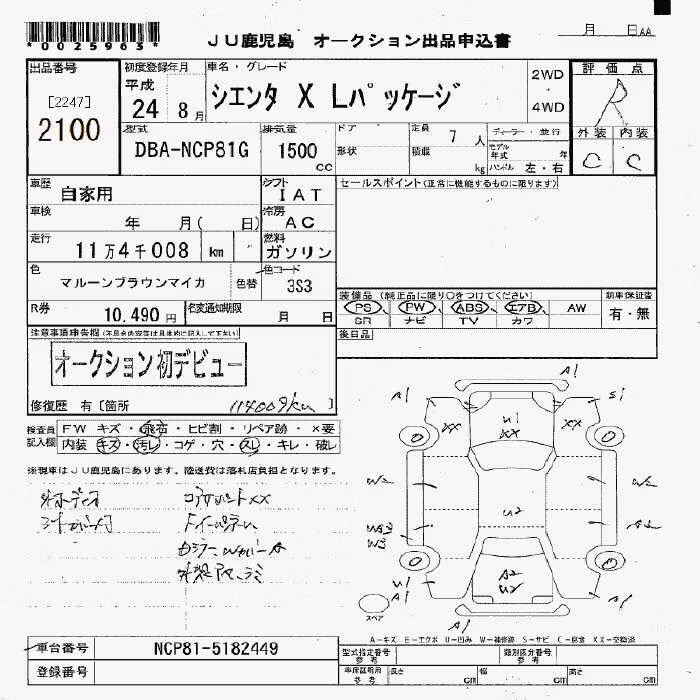 *0025963*
JU鹿児島 オークション出品申込書 月 日AA
出品番号 初度登録年月 車名・グレード 2WD 評価点
[2247] 平成 シエンタ X Lパッケージ R
2100 24 8月 4WD
型式 排気量 ドア 定員 7 人 ディーラー・並行 外装 内装
DBA-NCP81G 1500 cc 形状 積載 kg モデル年式 年 ハンドル 左・右 C C
車歴 自家用 シフト IAT セールスポイント(正常に機能するものに限ります)
車検 年 月( 日) 冷房 AC
走行 11万4千008 km 燃料 ガソリン
色 マルーンブラウンマイカ 色替 色コード 3S3
R券 10,490円 名変通知期限 月 日 装備品(純正品に限り〇をつけてください) 新車保証書
PS、PW、ABS、エアB、AW 有・無
SR ナビ TV カワ
注意事項申告欄(不具合内容等は具体的に記入して下さい) 後日品
オークション初デビュー
修復歴 有〔箇所 114009km 〕
検査員記入欄 FW キズ・飛石・ヒビ割・リペア跡・×要
内装 キズ・汚レ・コゲ・穴・スレ・キレ・破レ
※現車はJU鹿児島にあります。陸送費は落札店負担となります。
A1
A1 S1
XX U1 XX XX
W2 U2 W2
W3 A2
U1 A2 U2
A1 A1
A1
スペア
A-キズ E-エクボ U-凹み W-補修跡 S-サビ C-腐食 XX-交換済
車台番号 NCP81-5182449 型式指定番号 参考 類別区分番号 参考
登録番号 車庫証明用 参考 長さ cm 幅 cm 高さ cm